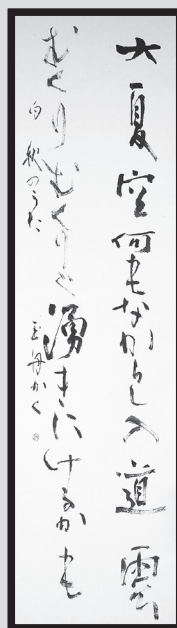 大夏空何もなかりし入道雲
むくりむくりと湧きにけるかも
白秋のうた
かく